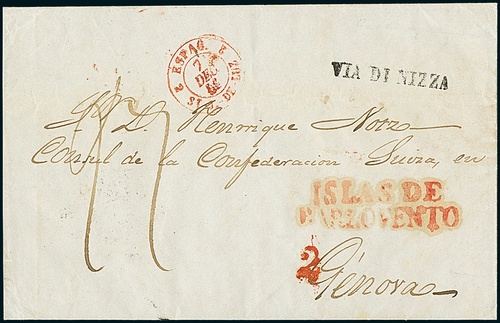 2 ESPAG. 2
7
DEC
ST. J. DE LUZ
VIA DI NIZZA
D. Henrrique Notz
Consul de la Confederacion Suiza, en
ISLAS DE
BARLOVENTO
2
Génova